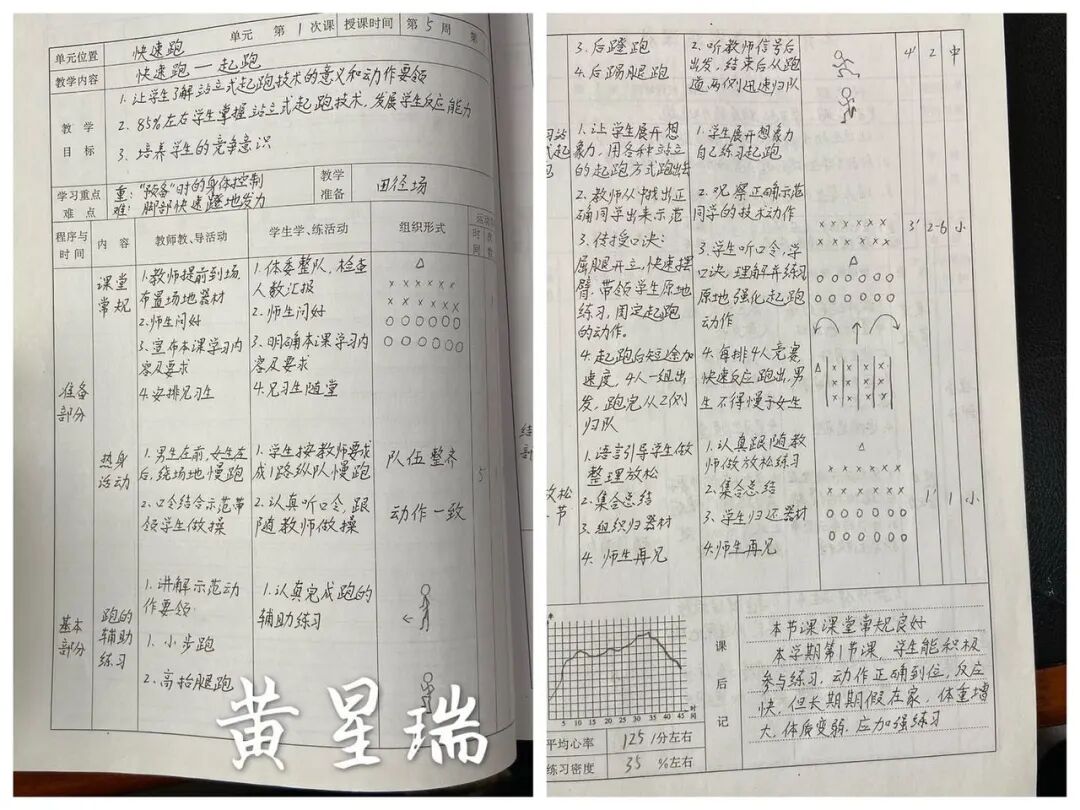 单元位置 快速跑 单元 第1次课 授课时间 第5周 第
教学内容 快速跑—起跑
教学目标
1.让学生了解站立式起跑技术的意义和动作要领
2.85%左右学生掌握站立式起跑技术,发展学生反应能力
3.培养学生的竞争意识
学习重点难点
重:"预备"时的身体控制
难:脚部快速蹬地发力
教学准备 田径场
程序与时间 内容 教师教、导活动 学生学、练活动 组织形式
时间 次数
准备部分
课堂常规
1.教师提前到场,
布置场地器材
2.师生问好
3.宣布本课学习内
容及要求
4.安排见习生
1.体委整队,检查
人数汇报
2.师生问好
3.明确本课学习内
容及要求
4.见习生随堂
热身活动
1.男生在前,女生在
后,绕场地慢跑
2.口令结合示范带
领学生做操
1.学生按教师要求
成1路纵队慢跑
2.认真听口令,跟
随教师做操
队伍整齐
动作一致
5
基本部分
跑的辅助练习
1.讲解示范动
作要领
1.小步跑
2.高抬腿跑
1.认真完成跑的
辅助练习
黄星瑞
3.后蹬跑
4.后踢腿跑
2.听教师信号后
出发,结束后从跑
道两侧迅速归队
4' 2 中
1.让学生展开想
象力,用各种站立
的起跑方式跑出去
2.教师从中挑出正
确同学出来示范
3.传授口诀:
屈腿开立,快速摆
臂,带领学生原地
练习,固定起跑
的动作。
4.起跑后短途加
速度,4人一组出
发,跑完从2侧
归队
1.学生展开想象力
自己练习起跑
2.观察正确示范
同学的技术动作
3.学生听口令,学
口诀,理解并练习
原地,强化起跑
动作
4.每排4人竞赛
快速反应跑出,男
生不得慢于女生
3' 2-6 小
放松
节
1.语言引导学生做
整理放松
2.集合总结
3.组织归器材
4.师生再见
1.认真跟随教
师做放松练习
2.集合总结
3.学生归还器材
4.师生再见
1' 1 小
5 10 15 20 25 30 35 40 45 时间
平均心率 125/分左右
练习密度 35 %左右
课后记
本节课课堂常规良好
本学期第1节课,学生能积极
参与练习,动作正确到位,反应
快,但长期期假在家,体重增
大,体质变弱,应加强练习